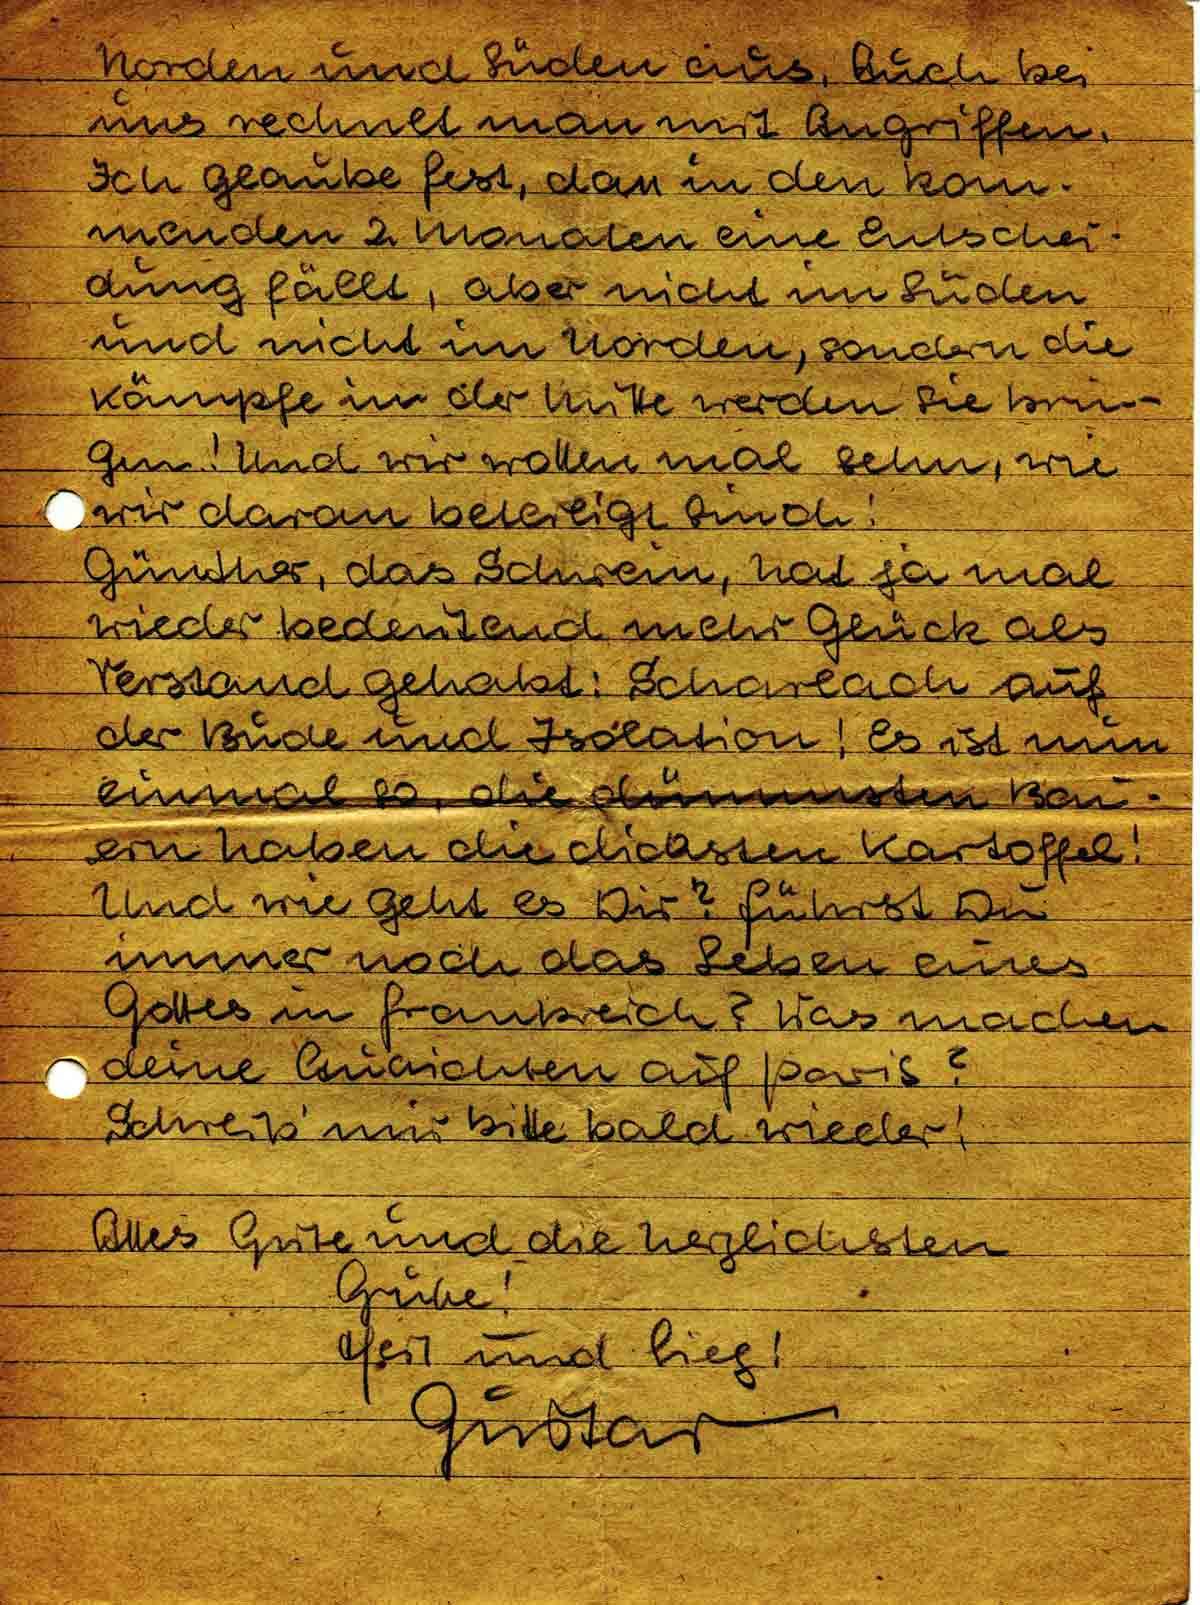 Norden und Süden aus. Auch bei
uns rechnet man mit Angriffen.
Ich glaube fest, dass in den kom-
menden 2 Monaten eine Entschei-
dung fällt, aber nicht im Süden
und nicht im Norden, sondern die
Kämpfe in der Mitte werden sie brin-
gen! Und wir wollen mal sehn, wie
wir daran beteiligt sind!
Günther, das Schwein, hat ja mal
wieder bedeutend mehr Glück als
Verstand gehabt: Scharlach auf
der Bude und Isolation! Es ist nun
einmal so, die dümmsten Bau-
ern haben die dicksten Kartoffel!
Und wie geht es Dir? Führst Du
immer noch das Leben eines
Gottes in Frankreich? Was machen
deine Aussichten auf Paris?
Schreib' mir bitte bald wieder!
Alles Gute und die herzlichsten
Grüße!
Heil und Sieg!
Gustav